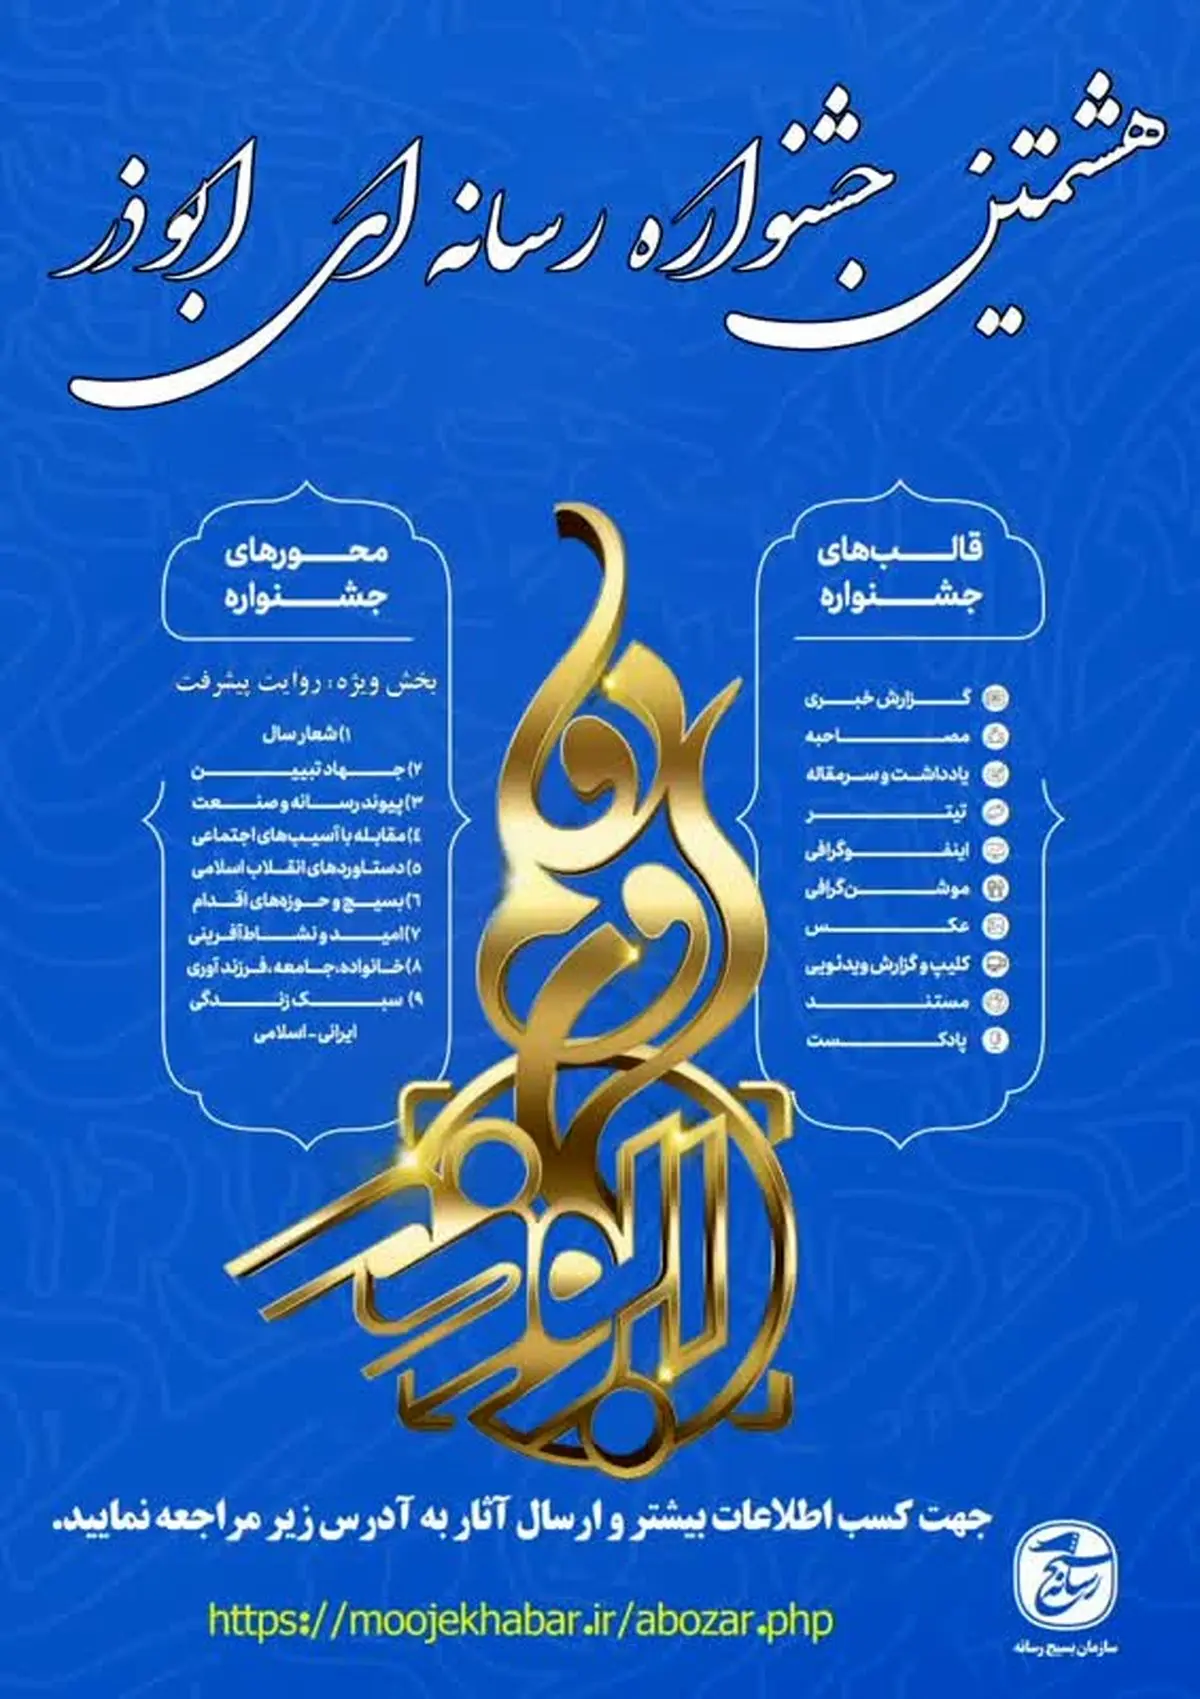 هشتمین جشنواره رسانه ای ابوذر
قالب‌های
جشنواره
گزارش خبری
مصاحبه
یادداشت و سرمقاله
تیتر
اینفوگرافی
موشن‌گرافی
عکس
کلیپ و گزارش ویدئویی
مستند
پادکست
محورهای
جشنواره
بخش ویژه: روایت پیشرفت
۱) شعار سال
۲) جهاد تبیین
۳) پیوند رسانه و صنعت
۴) مقابله با آسیب‌های اجتماعی
۵) دستاوردهای انقلاب اسلامی
۶) بسیج و حوزه‌های اقدام
۷) امید و نشاط‌آفرینی
۸) خانواده، جامعه، فرزندآوری
۹) سبک زندگی
ایرانی - اسلامی
ابوذر
جهت کسب اطلاعات بیشتر و ارسال آثار به آدرس زیر مراجعه نمایید.
https://moojekhabar.ir/abozar.php
بسیج
رسانه
سازمان بسیج رسانه